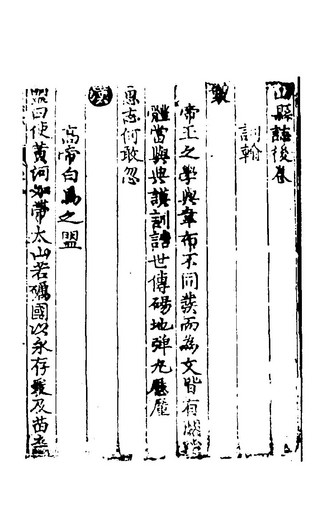 縣誌後卷
詞翰
帝王之學與韋布不同發而為文皆有
體當與典謨訓誥世傳碭地彈丸歷
志何敢忽
高帝白馬之盟
盟曰使黃河如帶太山若礪國以永存爰及苗